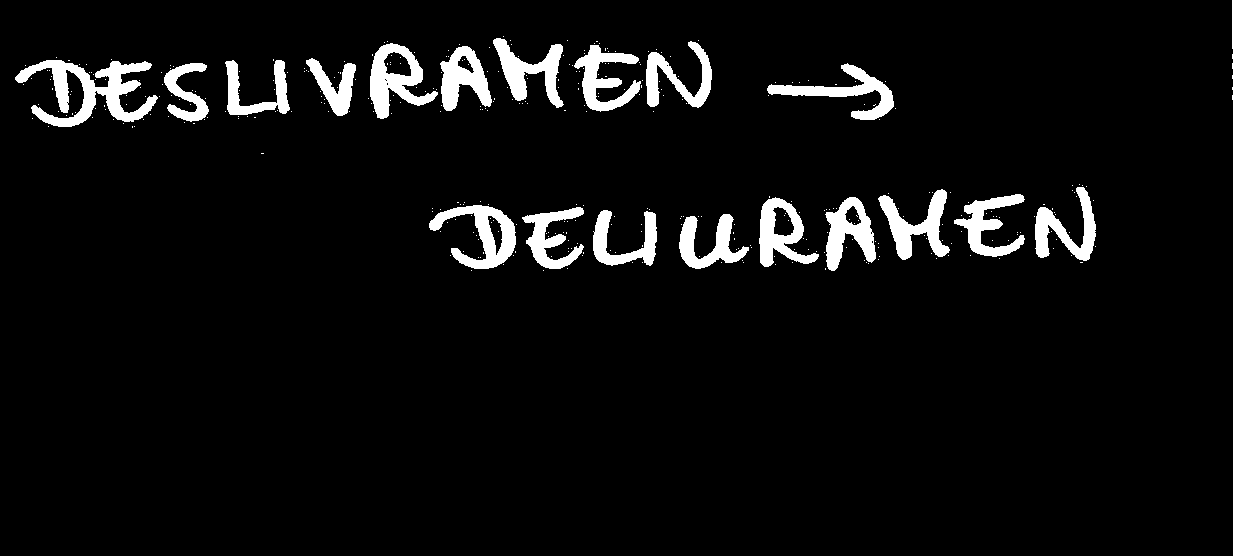 DESLIVRAMEN →
DELIURAMEN